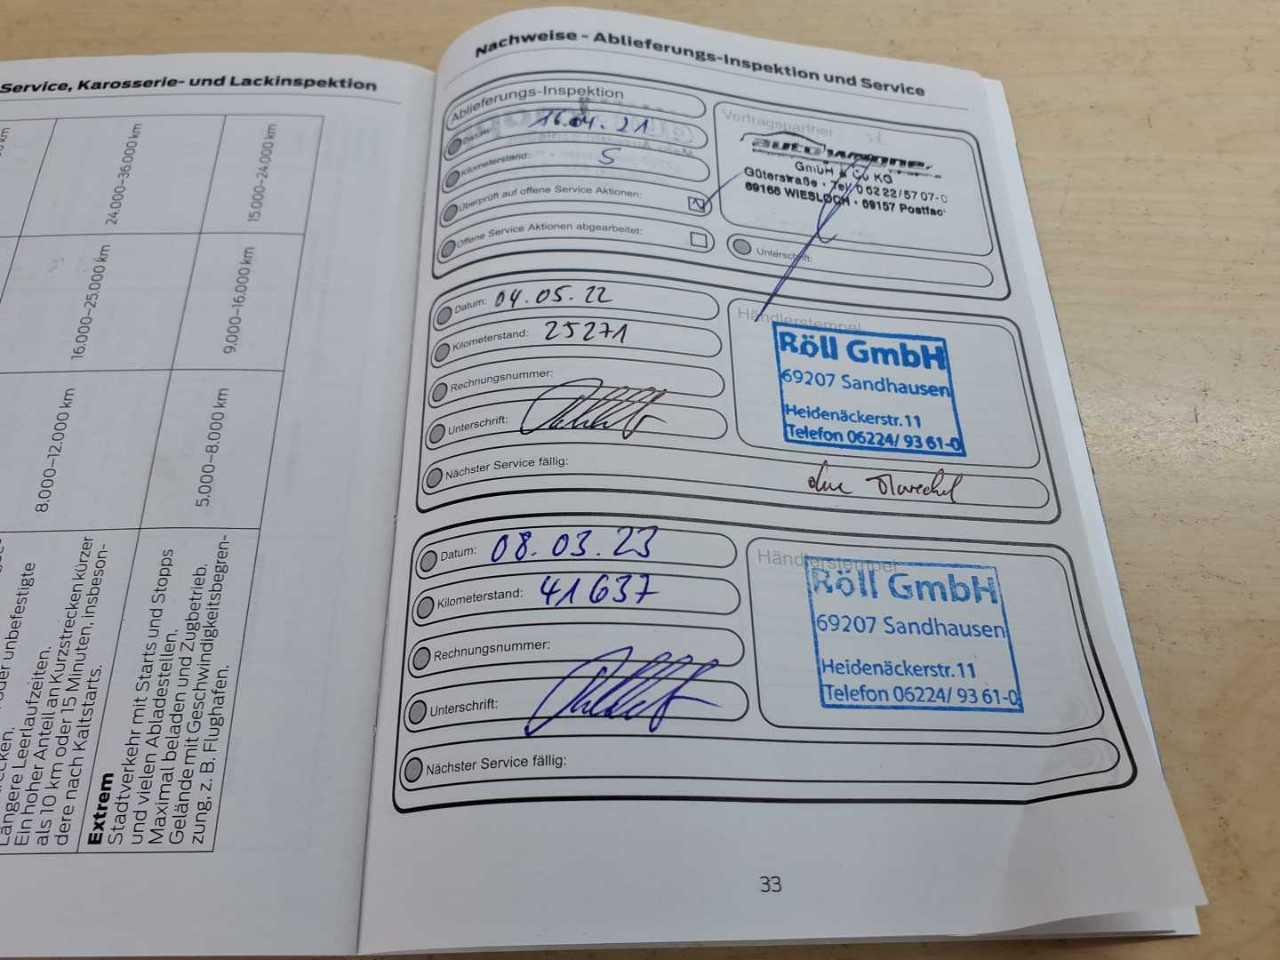 Service, Karosserie- und Lackinspektion
24.000–36.000 km
15.000–24.000 km
16.000–25.000 km
9.000–16.000 km
8.000–12.000 km
5.000–8.000 km
oder unbefestigte
Längere Leerlaufzeiten.
Ein hoher Anteil an Kurzstrecken kürzer
als 10 km oder 15 Minuten, insbeson-
dere nach Kaltstarts.
Extrem
Stadtverkehr mit Starts und Stopps
und vielen Abladestellen.
Maximal beladen und Zugbetrieb.
Gelände mit Geschwindigkeitsbegren-
zung, z. B. Flughafen.
Nachweise - Ablieferungs-Inspektion und Service
Ablieferungs-Inspektion
Datum: 16.04.21
Kilometerstand: 5
Überprüft auf offene Service Aktionen:
Offene Service Aktionen abgearbeitet:
Vertragspartner
GmbH & Co KG
Güterstraße · Tel. 06222/5707-0
69168 WIESLOCH · 69157 Postfac
Unterschrift:
Datum: 04.05.22
Kilometerstand: 25271
Rechnungsnummer:
Unterschrift:
Nächster Service fällig:
Händlerstempel
Röll GmbH
69207 Sandhausen
Heidenäckerstr. 11
Telefon 06224/ 93 61-0
Datum: 08.03.23
Kilometerstand: 41637
Rechnungsnummer:
Unterschrift:
Nächster Service fällig:
Händlerstempel
Röll GmbH
69207 Sandhausen
Heidenäckerstr. 11
Telefon 06224/ 93 61-0
33